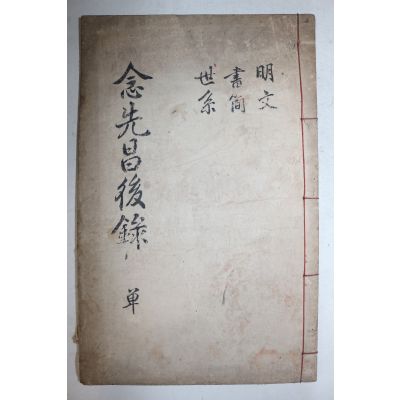 明文
書簡
世系
念先昌後錄
單